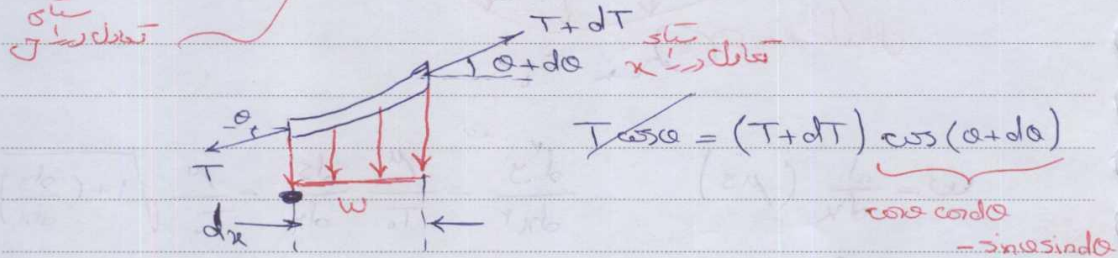 تعادل در راستای y
T + dT
θ + dθ
تعادل در راستای x
θ
T
T cosθ = (T+dT) cos(θ+dθ)
w
cosθ cosdθ
dx
- sinθ sindθ